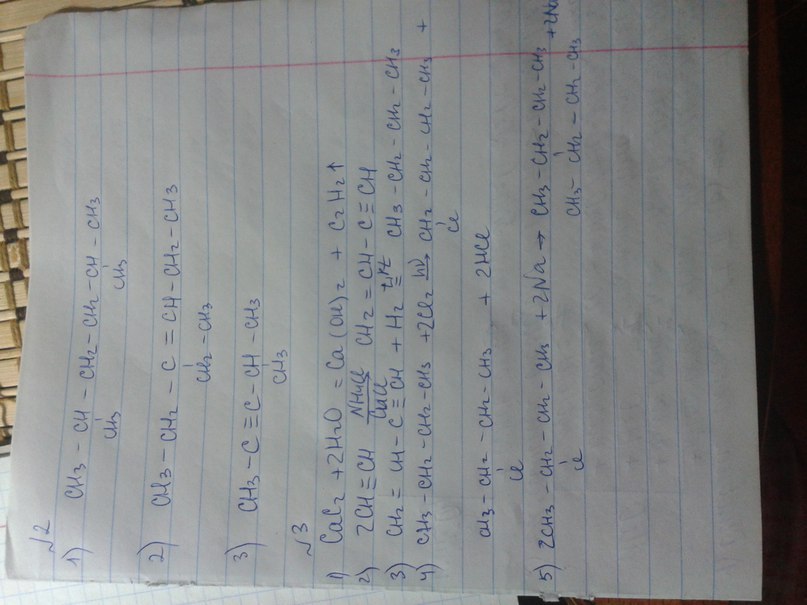 √2
1) CH3 - CH - CH2 - CH2 - CH - CH3
CH3 CH3
2) CH3 - CH2 - C = CH - CH2 - CH3
CH2 - CH3
3) CH3 - C ≡ C - CH - CH3
CH3
√3
1) CaC2 + 2H2O = Ca(OH)2 + C2H2↑
2) 2CH≡CH NH4Cl CuCl CH2 = CH - C ≡ CH
3) CH2 = CH - C ≡ CH + H2 t, Pt = CH3 - CH2 - CH2 - CH3
4) CH3 - CH2 - CH2 - CH3 + 2Cl2 hν → CH2 - CH2 - CH2 - CH3 +
Cl
CH3 - CH2 - CH2 - CH3 + 2HCl
Cl
5) 2CH3 - CH2 - CH2 - CH3 + 2Na → CH3 - CH2 - CH2 - CH3 + 2Na
Cl CH3 - CH2 - CH2 - CH3